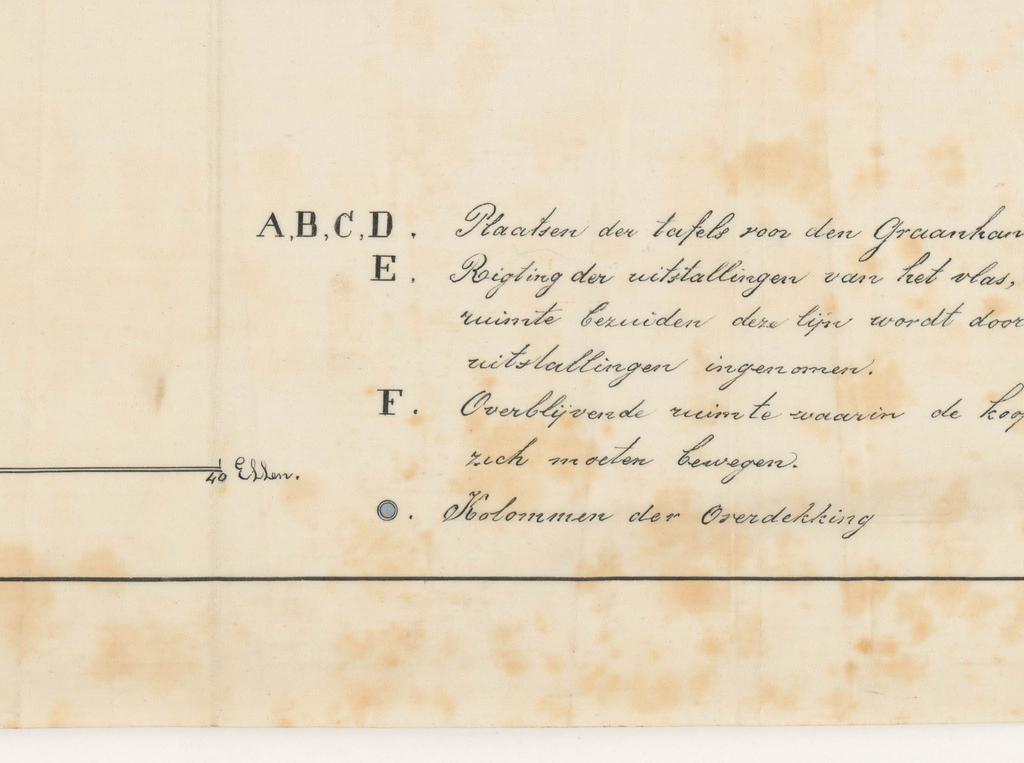 A, B, C, D. Plaatsen der tafels voor den Graanhan
E. Rigting der uitstallingen van het vlas,
ruimte bezuiden deze lijn wordt door
uitstallingen ingenomen.
F. Overblijvende ruimte waarin de koop
zich moeten bewegen.
40 Ellen.
. Kolommen der Overdekking